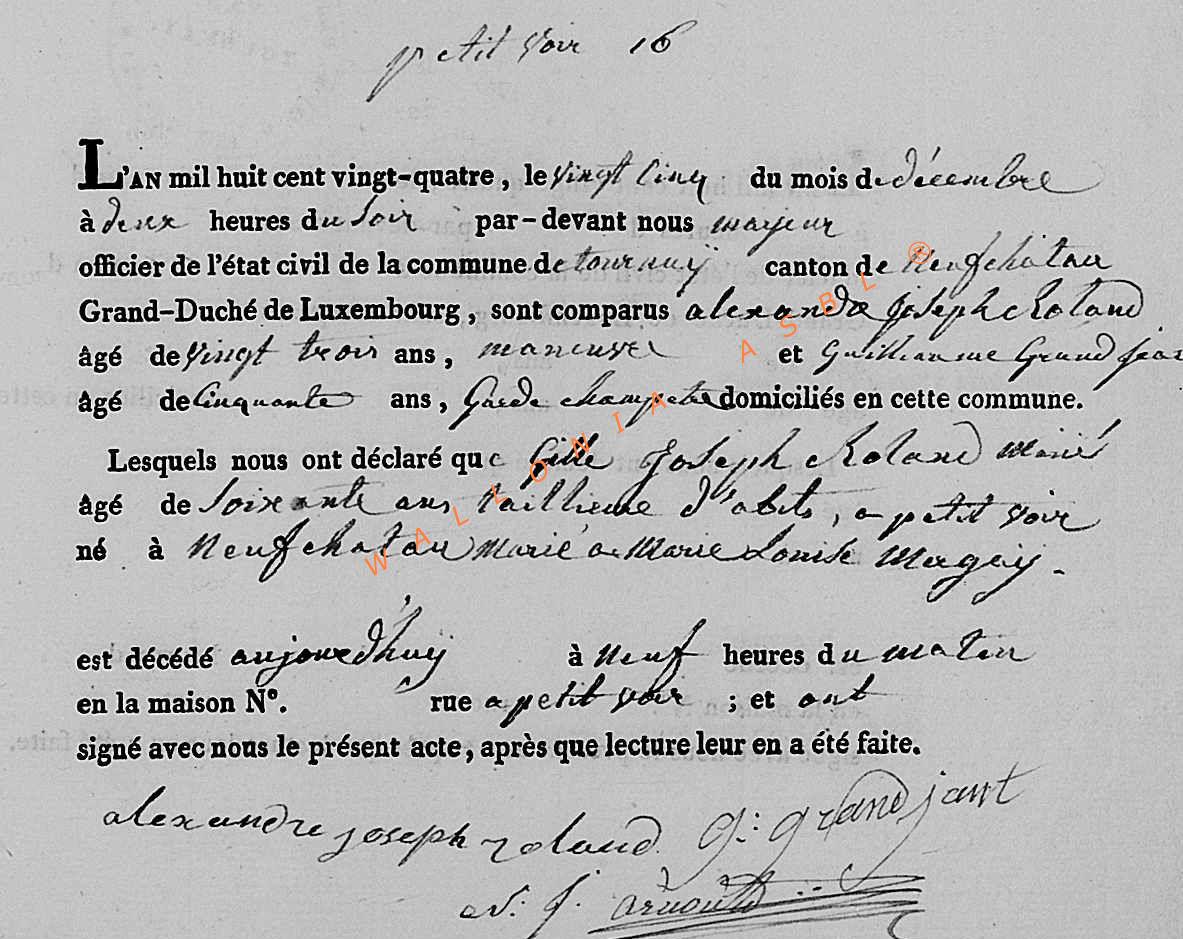 petit voir 16
L'AN mil huit cent vingt-quatre, le vingt cinq du mois de décembre
à deux heures du soir par-devant nous mayeur
officier de l'état civil de la commune de tournaÿ canton de neufchatau
Grand-Duché de Luxembourg, sont comparus alexandre joseph Roland
âgé de vingt trois ans, maneuvre et Guillaume Grand jean
âgé de Cinquante ans, Garde champetre domiciliés en cette commune.
Lesquels nous ont déclaré que Gille joseph Roland marié
âgé de soixante ans taillieure d'abits, a petit voir
né à neufchatau marié a marie Louise
est décédé aujourdhuÿ à neuf heures du matin
en la maison N°. rue a petit voir ; et ont
signé avec nous le présent acte, après que lecture leur en a été faite.
alexandre joseph roland g: grandjant
j. arnould
WALLONIA ASBL ®